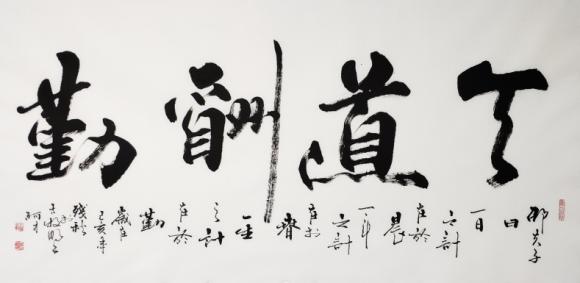 天道酬勤
邵夫子
曰
一日
之計
在於
晨
一年
之計
在於
春
一生
之計
在於
勤
歲在
己亥年
殘秋